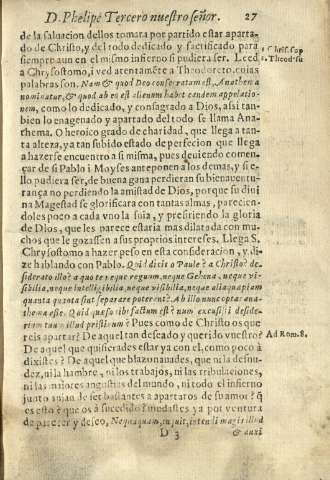 D. Phelipe Tercero nuestro señor. 27
de la saluacion dellos tomara por partido estar aparta-
do de Christo, y del todo dedicado y sacrificado para
siempre aun en el mismo infierno si pudiera ser. Leed
a Chrysostomo, i ved atentamēte a Theodoreto, cuias
palabras son. Nam & quod Deo consecratum est, Anathema
nominatur, & quod ab eo est alienum habet eandem appellatio-
nem, como lo dedicado, y consagrado a Dios, assi tan-
bien lo enagenado y apartado del todo se llama Ana-
thema. O heroico grado de charidad, que llega a tan-
ta alteza, ya tan subido estado de perfecion que llega
a hazerse encuentro a si misma, pues deuiendo comen-
çar de si Pablo i Moyses anteponen a los demas, y si e-
llo pudiera ser, de buena gana perdieran su bienauentu-
rança no perdiendo la amistad de Dios, porque su diui
na Magestad se glorificara con tantas almas, parecien-
doles poco a cada vno la suia, y prefiriendo la gloria
de Dios, que les parece estaria mas dilatada con mu-
chos que le gozassen a sus proprios intereses. Llega S.
Chrysostomo a hazer peso en esta consideracion, y di-
ze hablando con Pablo. Quid dicis o Paule? a Christo? de-
siderato illo? a quo te neque regnum, neque Gehena, neque vi-
sibilia, neque intelligibilia, neque visibilia, neque alia quæpiam
quanta quanta sint separare poterant? Ab illo nunc optas ana-
thema esse. Quid quæso tibi factum est? num excussisti deside-
rium tuum illud pristinum? Pues como de Christo os que
reis apartar? De aquel tan deseado y querido vuestro?
De aquel que quisierades estar ya con el, como poco à
dixistes? De aquel que blazonauades, que ni la desnu-
dez, ni la hambre, ni los trabajos, ni las tribulaciones,
ni las maiores angustias del mundo, ni todo el infierno
junto auian de ser bastantes a apartaros de su amor? q̄
es esto? que os à sucedido? mudastes ya por ventura
de parecer y deseo, Nequaquam, inquit, intendi magis illud
D 3 & auxi
Chrisost. sup
Theod. su
Ad Rom. 8.